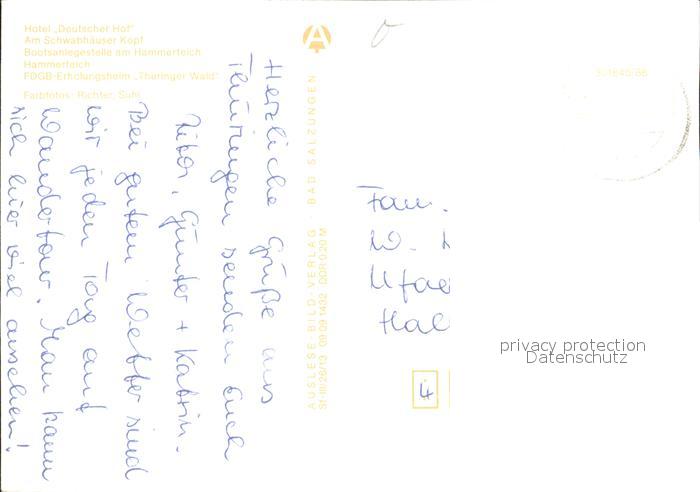 Hotel „Deutscher Hof"
Am Schwabhäuser Kopf
Bootsanlegestelle am Hammerteich
Hammerteich
FDGB-Erholungsheim „Thüringer Wald"
Farbfotos: Richter, Suhl
Herzliche Grüße aus
Thüringen senden Euch
Günter + Katrin.
Bei gutem Wetter sind
wir jeden Tag auf
Wandertour. Man kann
sich hier viel ansehen!
AUSLESE-BILD-VERLAG · BAD SALZUNGEN
Sf-III/26/13 09 09 1432 DDR 0,20 M
Fam.
W.
Hal
4
privacy protection
Datenschutz